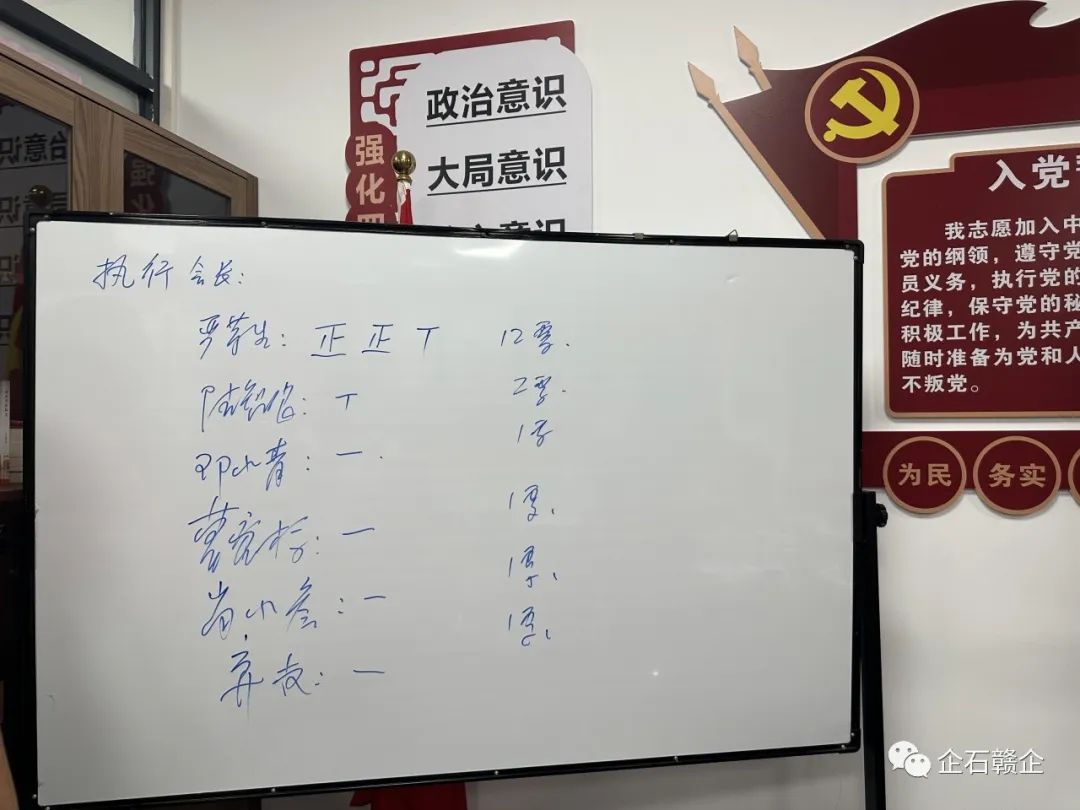 政治意识
大局意识
强化四
入党
我志愿加入中
党的纲领，遵守党
员义务，执行党的
纪律，保守党的秘
积极工作，为共产
随时准备为党和人
不叛党。
为民
务实
执行会长：
正正丅 12票.
丅 2票.
邓小青：一. 1票
一 1票.
肖小 ：一 1票.
弃权：一 1票.
企石赣企